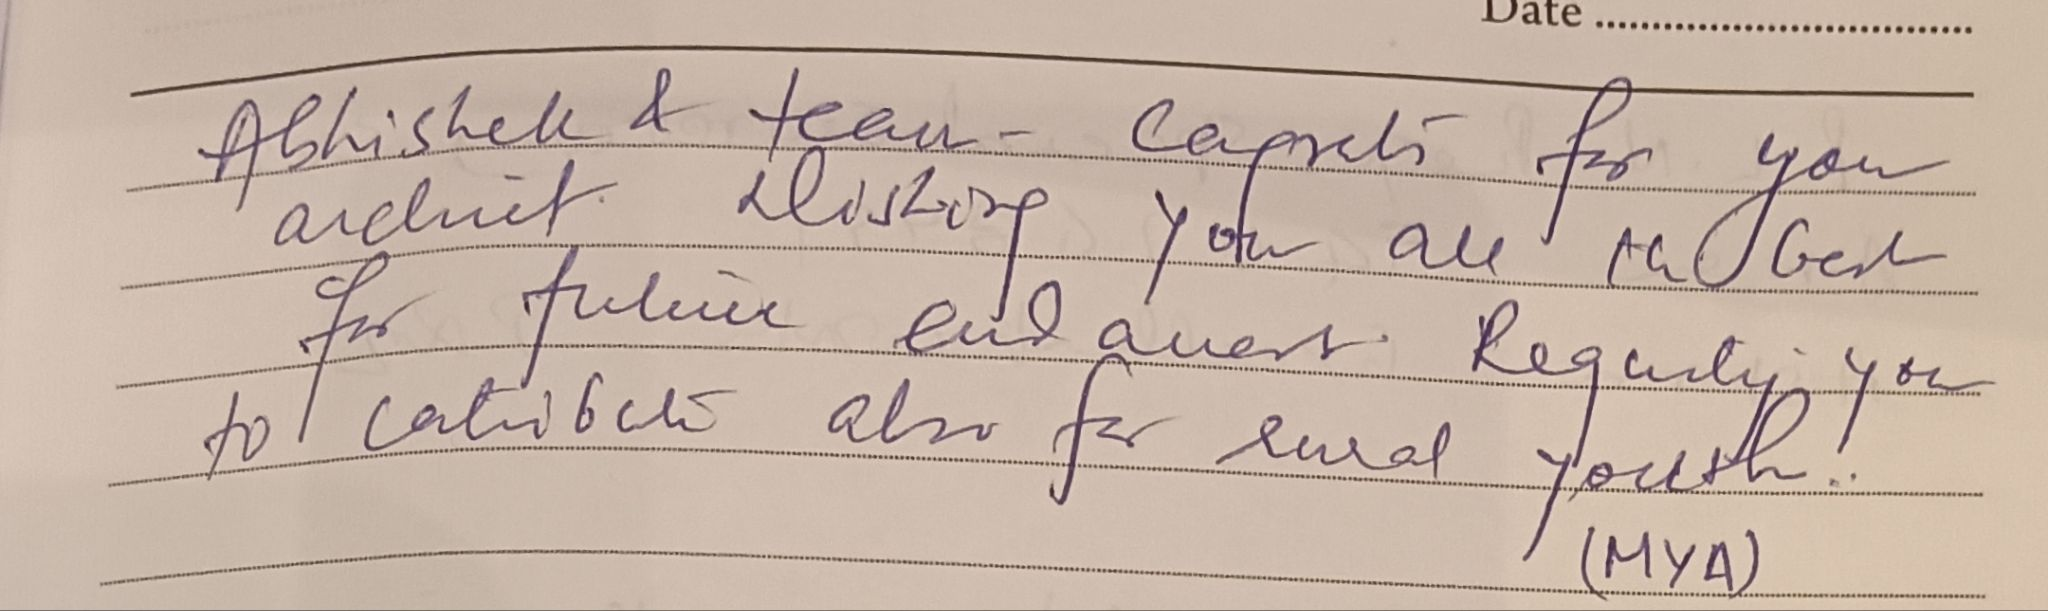 Date ........................
Abhishek & team - Congrats for you
Wishing you all the best
for future Requesting you
to contribute also for rural youth!
(MYA)